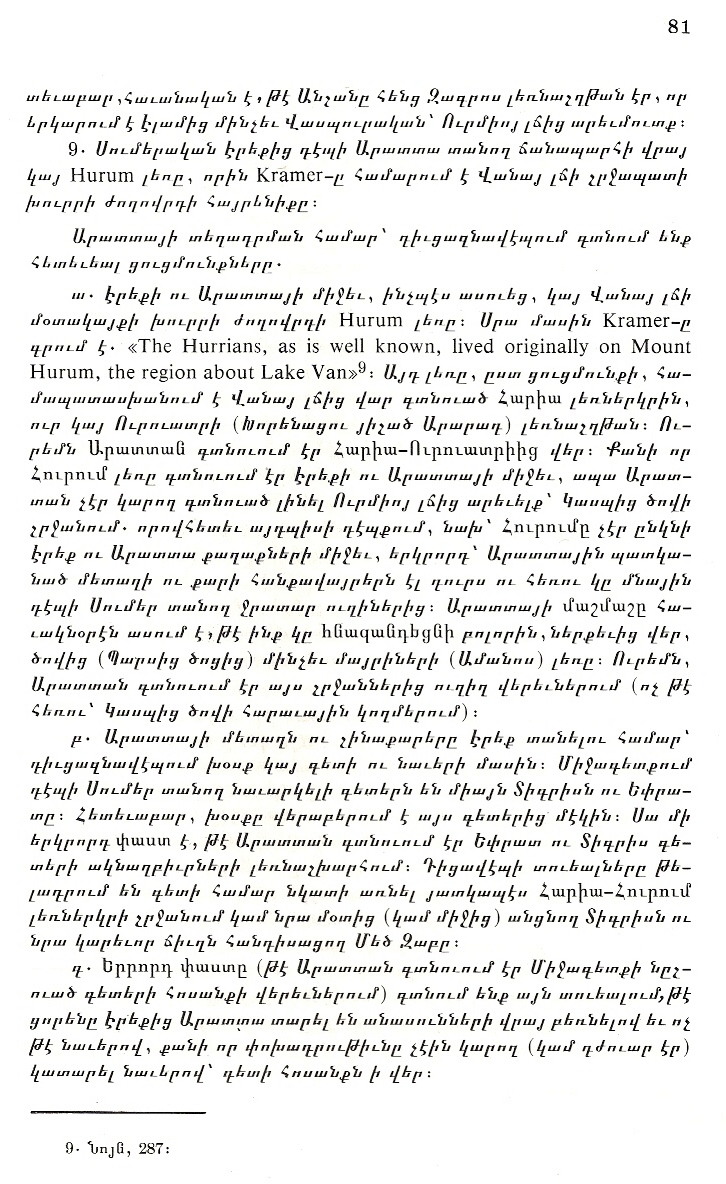 81
տեւաբար, հաւանական է, թէ Անշանը հենց Զագրոս լեռնաշղթան էր, որ
երկարում է էլամից մինչեւ Վասպուրական՝ Ուրմիոյ լճից արեւմուտք։
9. Սումերական էրեքից դէպի Արատտա տանող ճանապարհի վրայ
կայ Hurum լեռը, որին Kramer-ը համարում է Վանայ լճի շրջապատի
խուրրի ժողովրդի հայրենիքը։
Արատտայի տեղադրման համար՝ դիւցազնավէպում գտնում ենք
հետեւեալ ցուցմունքները.
ա. էրեքի ու Արատտայի միջեւ, ինչպէս ասուեց, կայ Վանայ լճի
մօտակայքի խուրրի ժողովրդի Hurum լեռը։ Սրա մասին Kramer-ը
գրում է. «The Hurrians, as is well known, lived originally on Mount
Hurum, the region about Lake Van»9։ Այդ լեռը, ըստ ցուցմունքի, հա-
մապատասխանում է Վանայ լճից վար գտնուած Հարիա լեռներկրին,
ուր կայ Ուրուատրի (Խորենացու յիշած Արարադ) լեռնաշղթան։ Ու-
րեմն Արատտան գտնուում էր Հարիա-Ուրուատրիից վեր։ Քանի որ
Հուրում լեռը գտնուում էր էրեքի ու Արատտայի միջեւ, ապա Արատ-
տան չէր կարող գտնուած լինել Ուրմիոյ լճից արեւելք՝ Կասպից ծովի
շրջանում. որովհետեւ այդպիսի դէպքում, նախ՝ Հուրումը չէր ընկնի
էրեք ու Արատտա քաղաքների միջեւ, երկրորդ՝ Արատտային պատկա-
նած մետաղի ու քարի հանքավայրերն էլ դուրս ու հեռու կը մնային
դէպի Սումեր տանող ջրատար ուղիներից։ Արատտայի մաշմաշը հա-
ւակնօրէն ասում է, թէ ինք կը հնազանդեցնի բոլորին, ներքեւից վեր,
ծովից (Պարսից ծոցից) մինչեւ մայրիների (Ամանոս) լեռը։ Ուրեմն,
Արատտան գտնուում էր այս շրջաններից ուղիղ վերեւներում (ոչ թէ
հեռու՝ Կասպից ծովի հարաւային կողմերում)։
բ. Արատտայի մետաղն ու շինաքարերը էրեք տանելու համար՝
դիւցազնավէպում խօսք կայ գետի ու նաւերի մասին։ Միջագետքում
դէպի Սումեր տանող նաւարկելի գետերն են միայն Տիգրիսն ու Եփրա-
տը։ Հետեւաբար, խօսքը վերաբերում է այս գետերից մէկին։ Սա մի
երկրորդ փաստ է, թէ Արատտան գտնուում էր Եփրատ ու Տիգրիս գե-
տերի ակնաղբիւրների լեռնաշխարհում։ Դիցավէպի տուեալները թե-
լադրում են գետի համար նկատի առնել յատկապէս Հարիա-Հուրում
լեռներկրի շրջանում կամ նրա մօտից (կամ միջից) անցնող Տիգրիսն ու
նրա կարեւոր ճիւղն հանդիսացող Մեծ Զաբը։
գ. Երրորդ փաստը (թէ Արատտան գտնուում էր Միջագետքի նըշ-
ուած գետերի հոսանքի վերեւներում) գտնում ենք այն տուեալում, թէ
ցորենը էրեքից Արատտա տարել են անասունների վրայ բեռնելով եւ ոչ
թէ նաւերով, քանի որ փոխադրութիւնը չէին կարող (կամ դժուար էր)
կատարել նաւերով՝ գետի հոսանքն ի վեր։
9. Նոյն, 287։